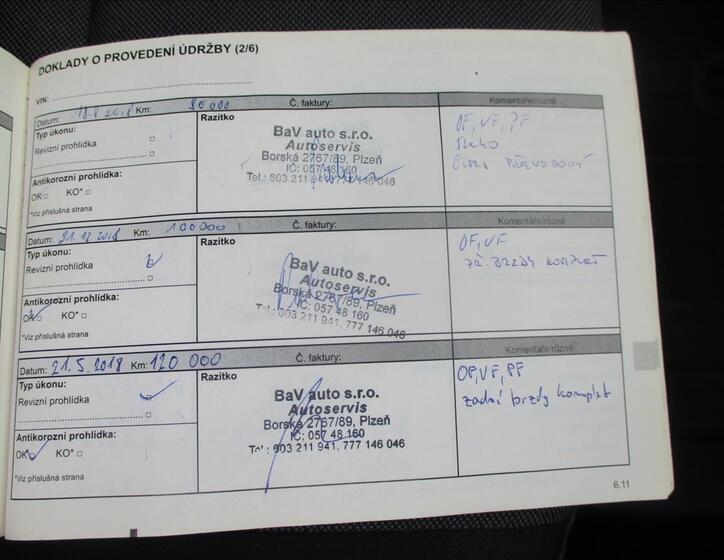 DOKLADY O PROVEDENÍ ÚDRŽBY (2/6)
VIN:
Datum: 18.8 2018 Km: 80 000 Č. faktury: Komentáře/různé
Typ úkonu:
Revizní prohlídka
Antikorozní prohlídka:
OK KO*
*Viz příslušná strana
Razítko
BaV auto s.r.o.
Autoservis
Borská 2767/89, Plzeň
IČ: 057 48 160
Tel.: 603 211 941, 777 146 046
OF, VF, PF
OLEJ PŘEVODOVÝ
Datum: 21.12 2018 Km: 100 000 Č. faktury: Komentáře/různé
Typ úkonu:
Revizní prohlídka
Antikorozní prohlídka:
OK KO*
*Viz příslušná strana
Razítko
BaV auto s.r.o.
Autoservis
Borská 2767/89, Plzeň
IČ: 057 48 160
Tel.: 603 211 941, 777 146 046
OF, VF
PŘ. BRZDY KOMPLET
Datum: 21.5.2018 Km: 120 000 Č. faktury: Komentáře/různé
Typ úkonu:
Revizní prohlídka
Antikorozní prohlídka:
OK KO*
*Viz příslušná strana
Razítko
BaV auto s.r.o.
Autoservis
Borská 2767/89, Plzeň
IČ: 057 48 160
Tel.: 603 211 941, 777 146 046
OF, VF, PF
zadní brzdy komplet
6.11